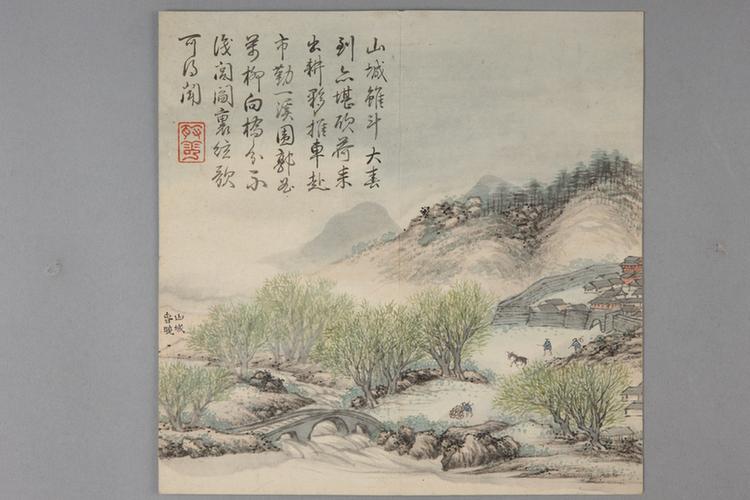 山城雖斗大春
到亦堪欣荷耒
出耕夥推車赴
市勤一溪圍郭
萬柳向橋分不
淺閭閻裏絃歌
可得聞
山城
春曉